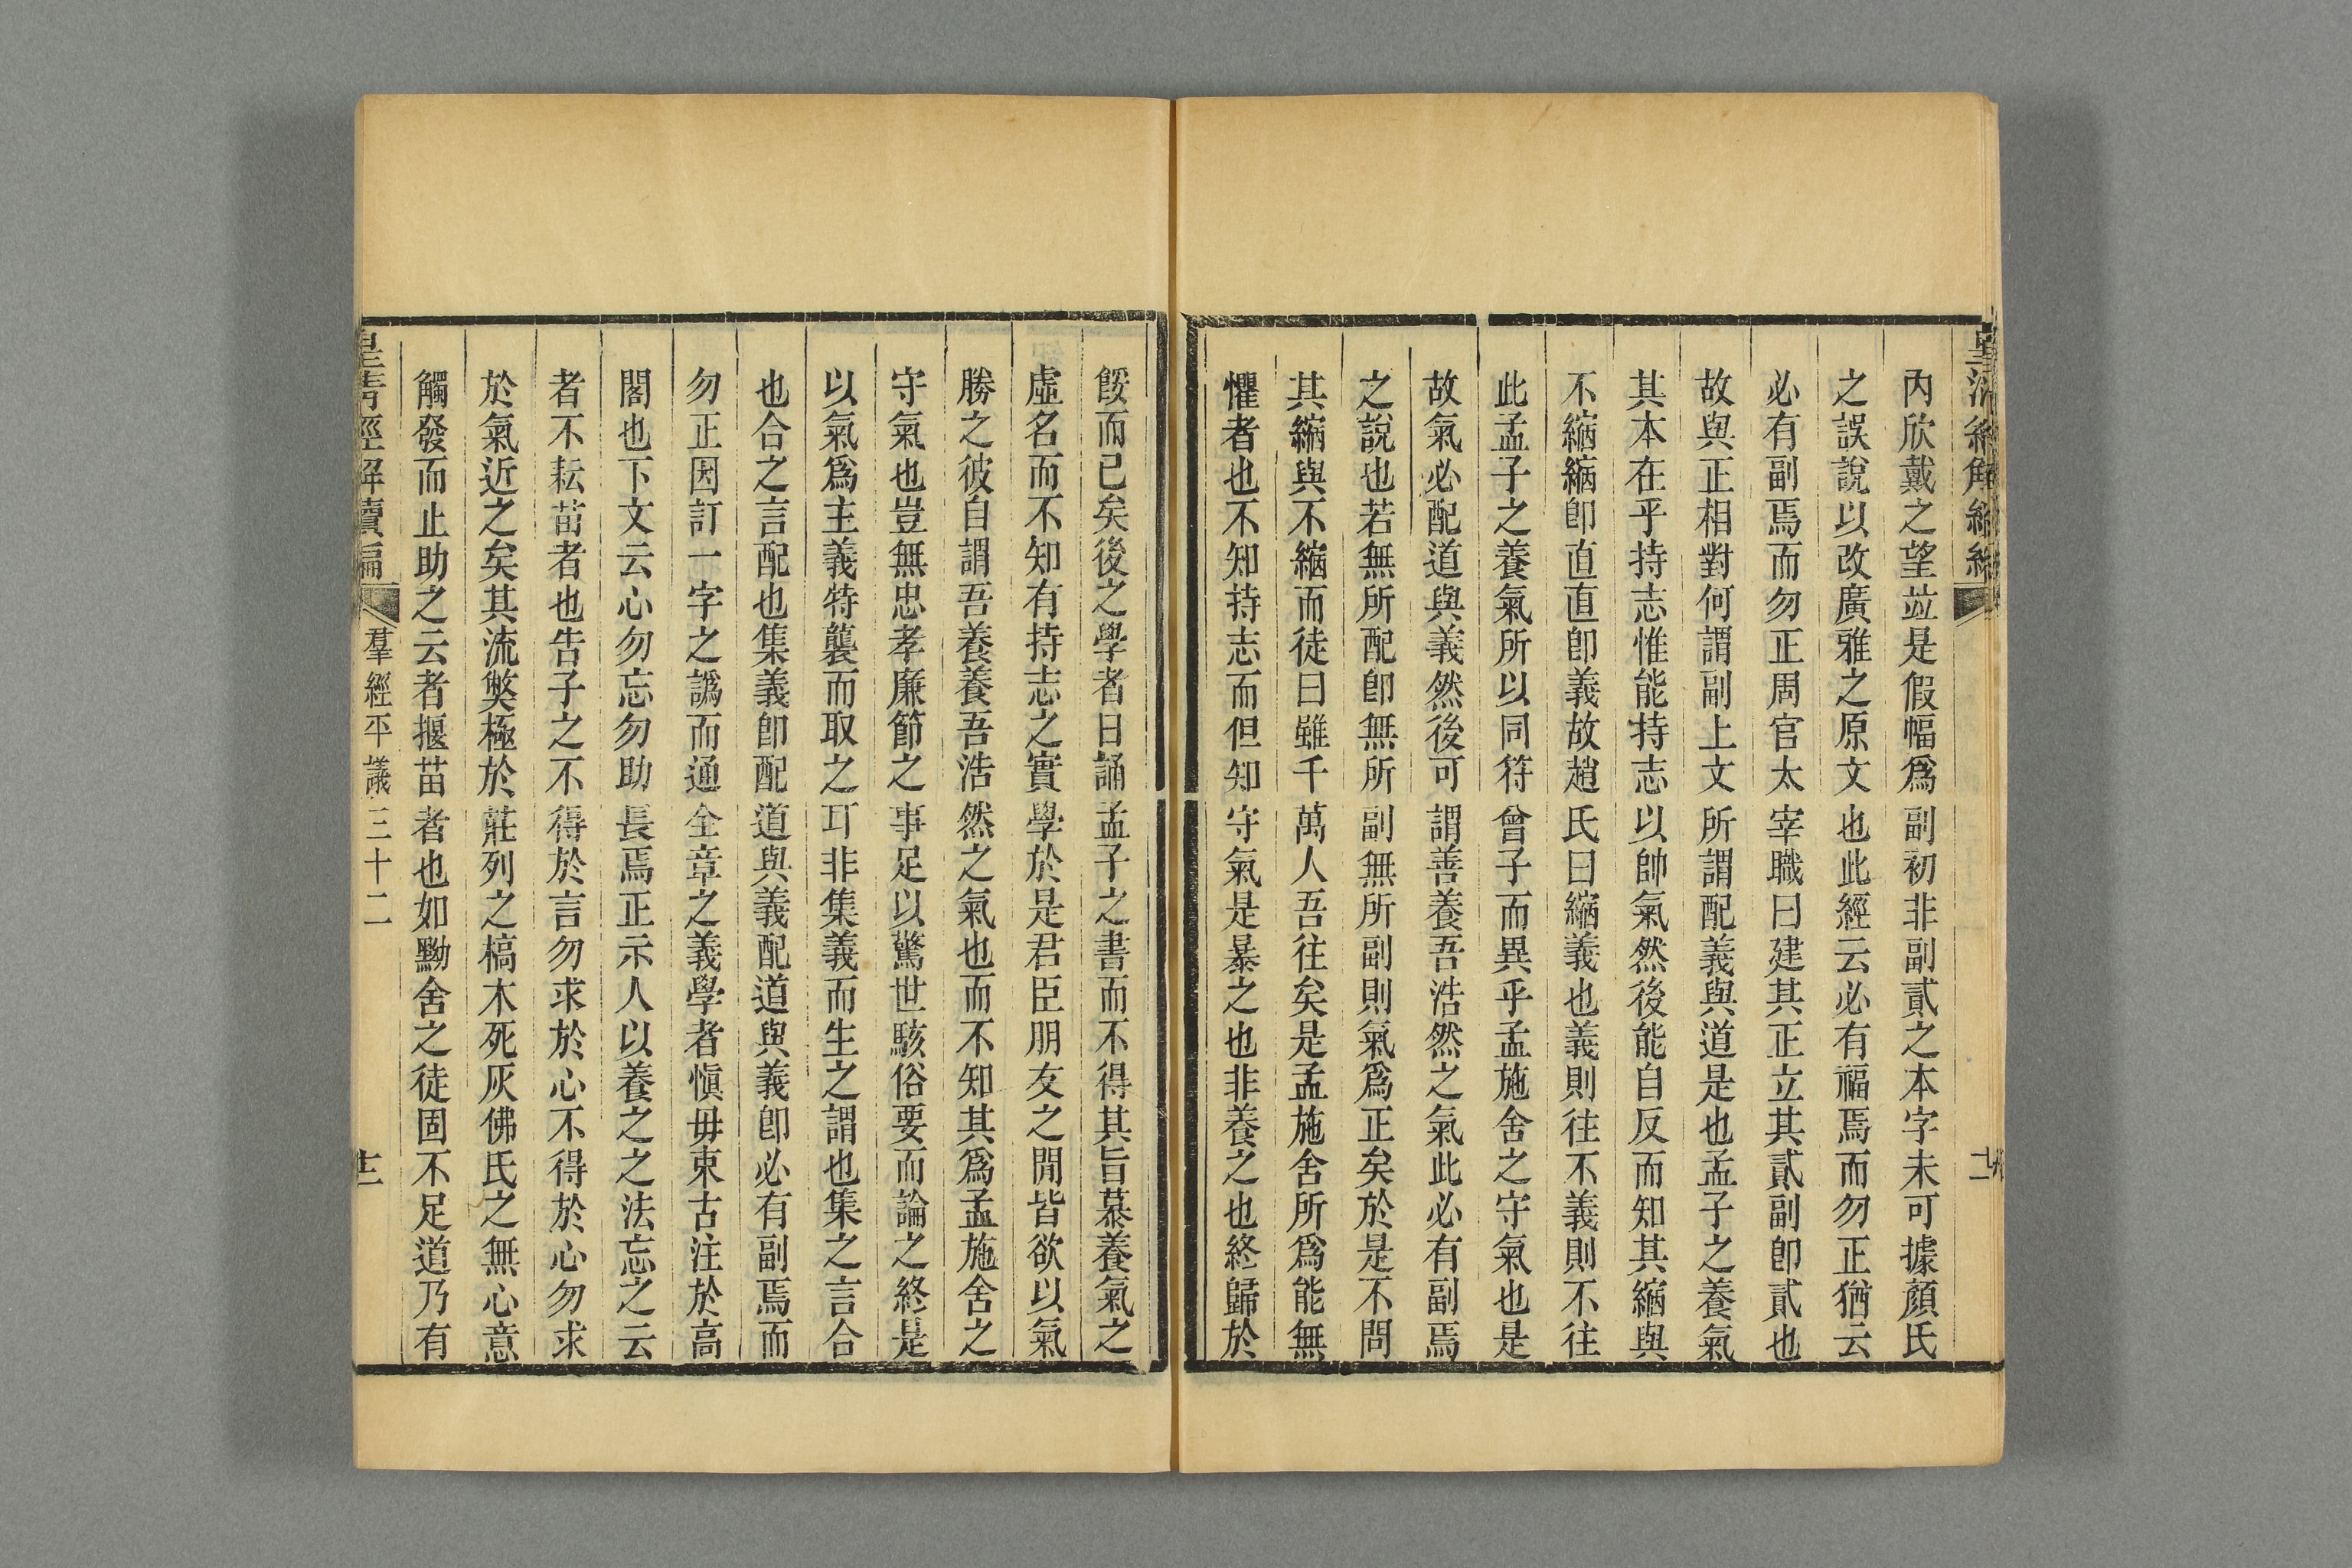 內欣戴之望竝是假幅爲副初非副貳之本字未可據顏氏
之誤說以改廣雅之原文也此經云必有福焉而勿正猶云
必有副焉而勿正周官太宰職曰建其正立其貳副卽貳也
故與正相對何謂副上文所謂配義與道是也孟子之養氣
其本在乎持志惟能持志以帥氣然後能自反而知其縮與
不縮縮卽直直卽義故趙氏曰縮義也義則往不義則不往
此孟子之養氣所以同符曾子而異乎孟施舍之守氣也是
故氣必配道與義然後可謂善養吾浩然之氣此必有副焉
之說也若無所配卽無所副無所副則氣爲正矣於是不問
其縮與不縮而徒曰雖千萬人吾往矣是孟施舍所爲能無
懼者也不知持志而但知守氣是暴之也非養之也終歸於
餒而已矣後之學者日誦孟子之書而不得其旨慕養氣之
虛名而不知有持志之實學於是君臣朋友之閒皆欲以氣
勝之彼自謂吾養養吾浩然之氣也而不知其爲孟施舍之
守氣也豈無忠孝廉節之事足以驚世駭俗要而論之終是
以氣爲主義特襲而取之耳非集義而生之謂也集之言合
也合之言配也集義卽配道與義配道與義卽必有副焉而
勿正因訂一字之譌而通全章之義學者愼毋束古注於高
閣也下文云心勿忘勿助長焉正示人以養之之法忘之云
者不耘苗者也告子之不得於言勿求於心不得於心勿求
於氣近之矣其流獘極於莊列之槁木死灰佛氏之無心意
觸發而止助之云者揠苗者也如黝舍之徒固不足道乃有
皇淸經解續編 羣經平議三十二